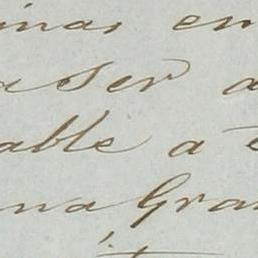 inas en
a ser a
able a
na Gra